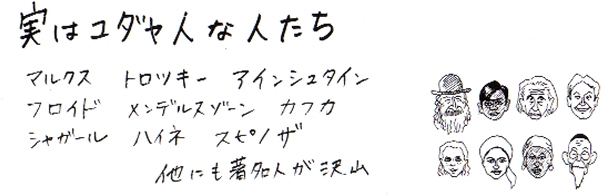 実はユダヤ人な人たち
マルクス トロツキー アインシュタイン
フロイド メンデルスゾーン カフカ
シャガール ハイネ スピノザ
他にも著名人が沢山